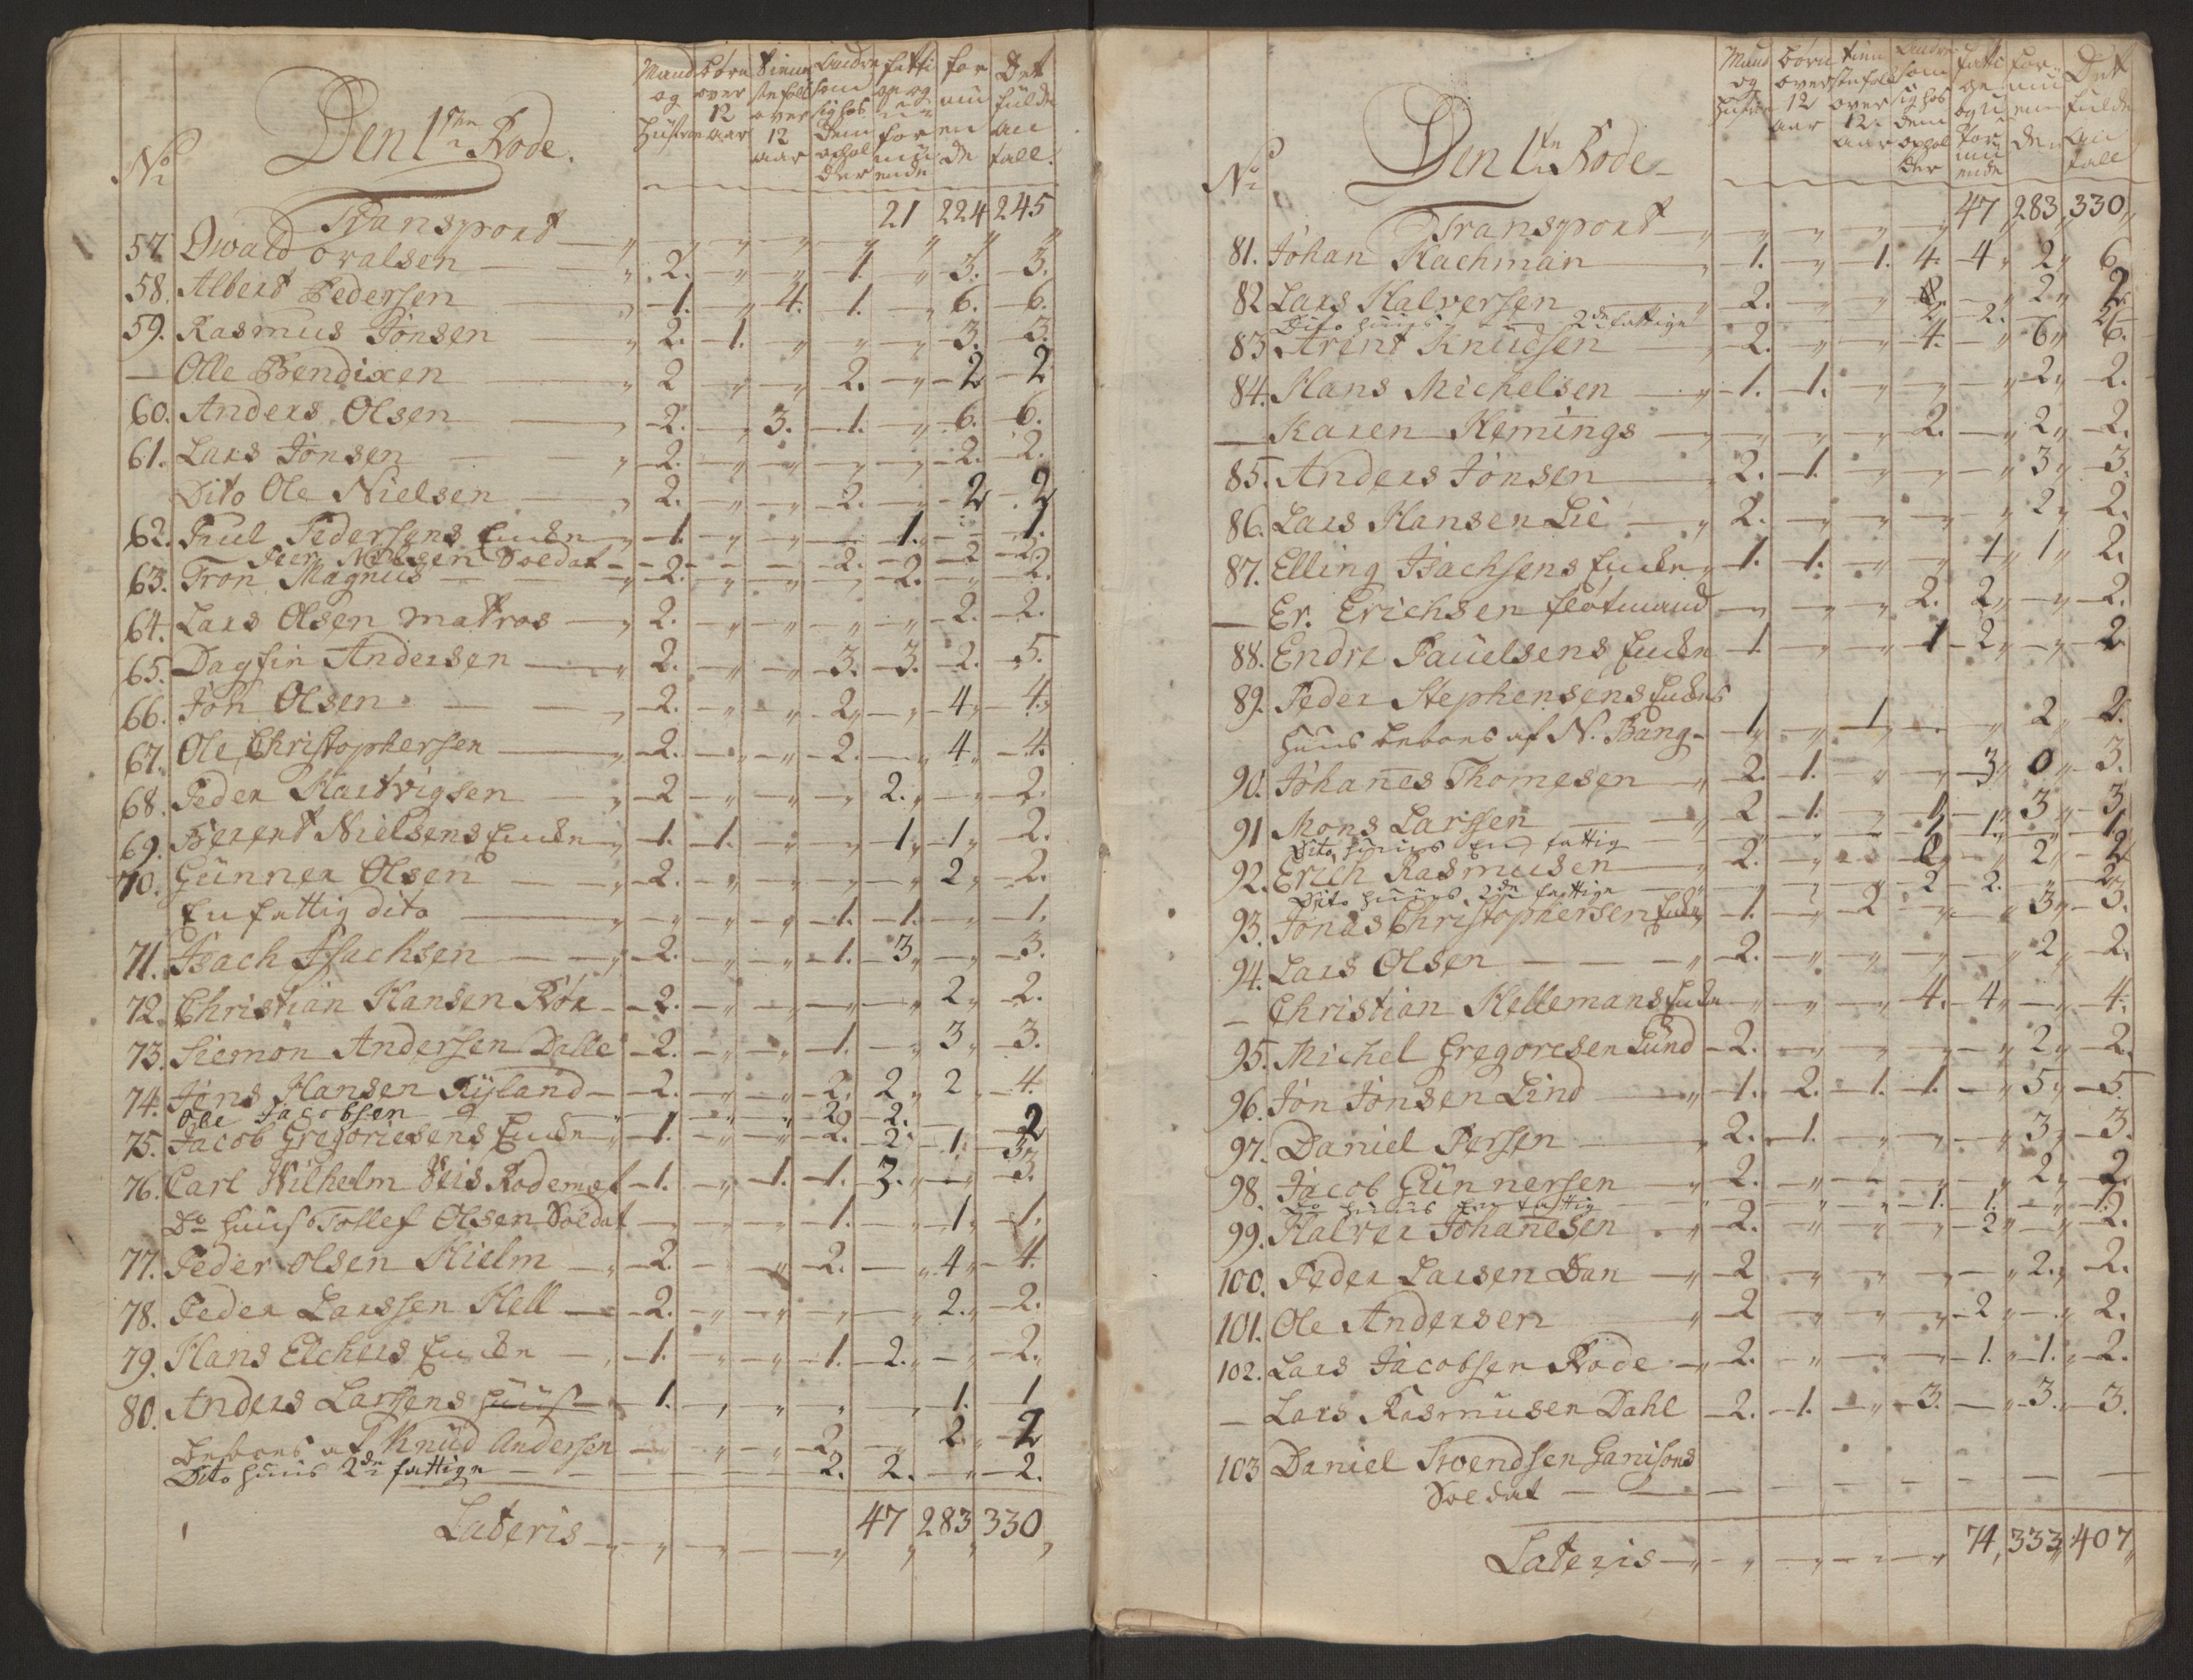 No Den 1ste Rode. Mand og Hustru Børn over 12 aar Tienestefolk over 12 aar Andre som sig hos dem opholder fatti ge og u for mu ende for mu en de Det fulde an tall.
Transport 21 224 245
57. Owald Ovalsen 2. 1. 3. 3.
58. Albert Pedersen 1. 4. 1. 6. 6.
59. Rasmus Jonsen 2. 1. 3. 3.
Olle Bendixen 2 2. 2 2
60. Anders Olsen 2. 3. 1. 6. 6.
61. Lars Jonsen 2. 2. 2.
Dito Ole Nielsen 2. 2. 2 2
62. Poul Pedersens Encke 1. 1. 1.
Peer Nielsen Soldat 2. 2 2.
63. Tron Magnus 2. 2. 2.
64. Lars Olsen matros 2. 2. 2.
65. Dagfin Andersen 2. 3. 3. 2. 5.
66. Joh Olsen 2. 2 4 4.
67. Ole Christophersen 2. 2. 4 4.
68. Peder Hartvigsen 2 2. 2.
69. Berent Nielsens Encke 1. 1. 1 1 2.
70. Gunner Olsen 2. 2 2.
En fattig dito 1. 1. 1.
71. Isach Isachsen 2. 1. 3 3.
72. Christian Hansen Rør 2. 2 2.
73. Siemon Andersen Dalle 2. 1. 3 3.
74. Jens Hansen Ryland 2. 2 2 2 4.
Ole Jacobsen 2 2. 2
75. Jacob Gregoriesens Encke 1. 2. 2. 1. 3
76. Carl Wilhelm Veis Rodemest 1. 1. 1. 3. 3.
Do huus Tollef Olsen Soldat 1. 1 1.
77. Peder Olsen Hielm 2. 2. 4 4.
78. Peder Larssen Hell 2. 2. 2.
79. Hans Elchers Encke 1. 1. 2. 2.
80. Anders Larssens huus 1. 1. 1
beboes af Knud Andersen 2 2 2
Dito huus 2de fattige 2. 2. 2.
Lateris 47 283 330
No Den 1te Rode Mand og Hustru børn over 12 aar tienestefolk over 12 aar Andre som sig hos dem ophol der fatti ge og u for mu ende for mu en den Det fulde an tall
Transport 47 283 330
81. Johan Rachman 1. 1. 4. 4 2 6
82 Lars Halversen 2. 2 2
Dito huus 2de fattige 2. 2. 2
83 Arent Knudsen 2. 4. 6 6.
84. Hans Michelsen 1. 1. 2 2.
Karen Hemings 2. 2 2.
85. Anders Jonsen 2. 1. 3 3.
86. Lars Hansen Lie 2. 2 2.
87. Elling Isachsens Encke 1. 1. 1 1 2.
Er. Erichsen fløtmand 2. 2 2.
88. Endre Pauelsens Encke 1. 1 2 2
89. Peder Stephensens Enckes
huus beboes af N. Bang 1 1 2 2.
90. Johanes Thomesen 2. 1. 3 0 3.
91 Mons Larssen 2 1. 3 3
Dito huus En fattig 1 1. 1
92. Erich Rasmusen 2. 2 2
Dito huus 2de fattige 2 2. 2
93. Jonas Christophersen Encke 1. 2 3 3.
94. Lars Olsen 2. 2 2.
Christian Kellemans Encke 4. 4 4.
95. Michel Gregoresen Lund 2. 2 2.
96. Jon Jonsen Lind 1. 2. 1. 1. 5 5
97. Daniel Persen 2. 1. 3 3.
98. Jacob Gunnersen 2. 2 2.
Do huus En fattig 1. 1. 1.
99. Halver Johanesen 2. 2 2.
100. Peder Larsen Dan 2 2. 2.
101. Ole Andersen 2 2 2.
102. Lars Jacobsen Rode 2. 1. 1. 2.
Lars Rasmusen Dahl 2. 1. 3. 3. 3.
103 Daniel Svendsen Garnisons
Soldat
Lateris 74, 333 407